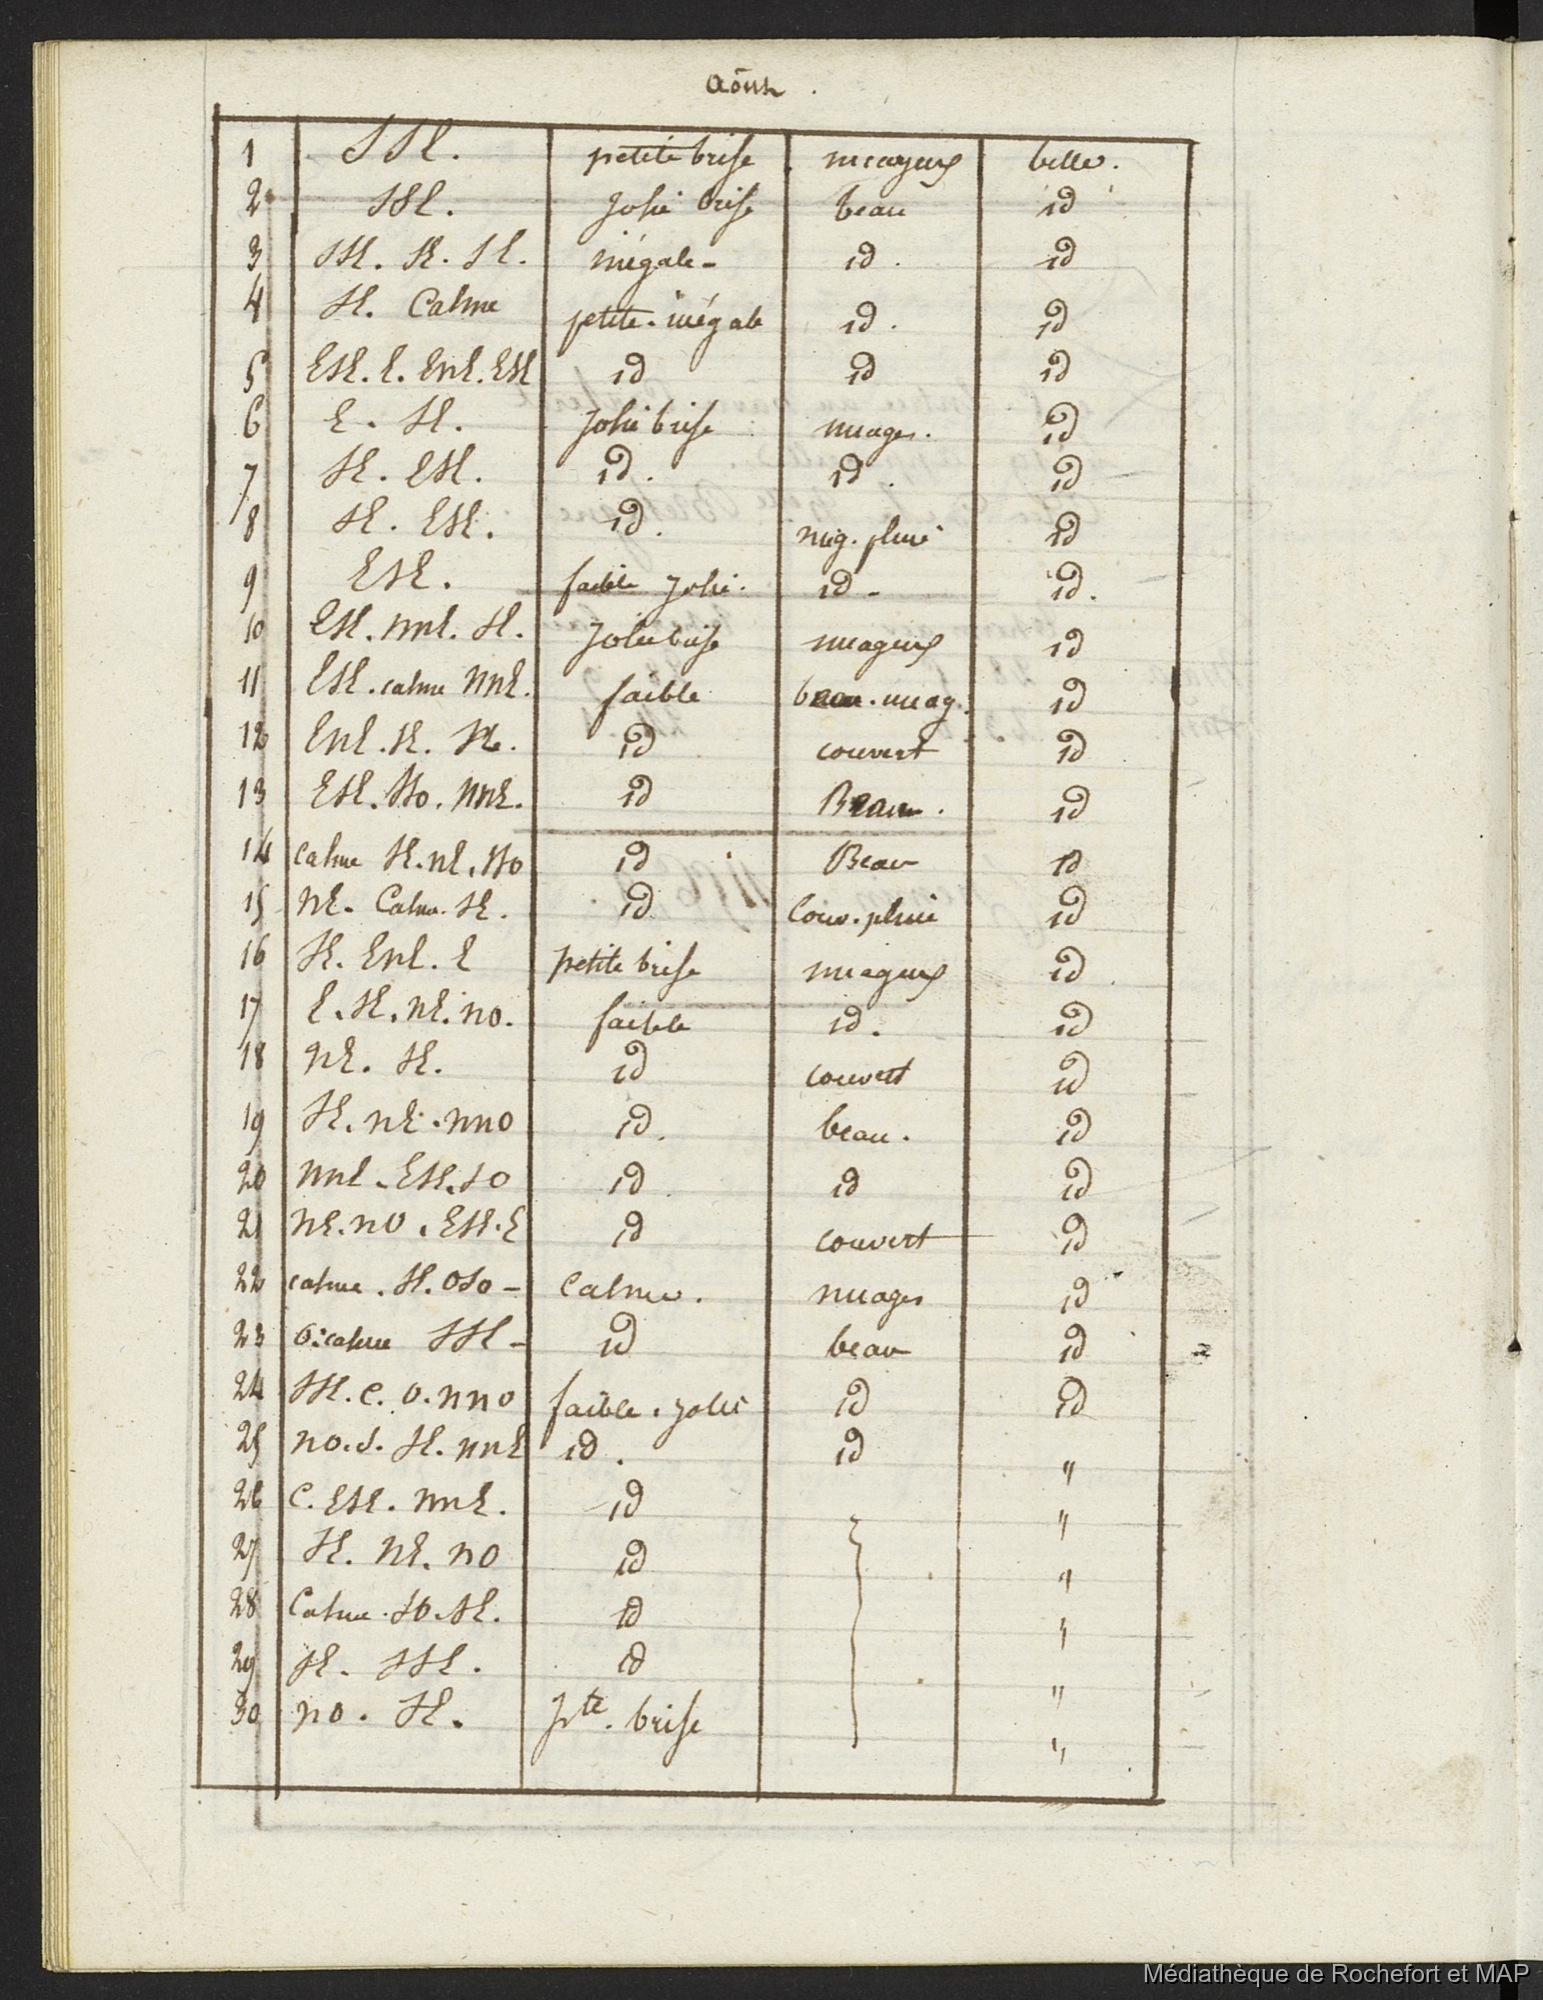 Août.
1 SSE. petite brise nuageux belle.
2 SSE. Jolie brise beau id
3 SSE. SE. SE. inégale - id. id
4 SE. Calme petite. inégale id. id
5 ESE. E. ENE. ESE id id id
6 E. SE. Jolie brise nuages. id
7 SE. ESE. id. id. id
8 SE. ESE. id. nuag. pluie id
9 ESE. faible Jolie. id - id.
10 ESE. nnE. SE. Jolie brise nuageux id
11 ESE. calme nnE. faible beau. nuag. id
12 EnE. SE. SE. id couvert id
13 ESE. SSO. nnE. id Beau. id
14 calme SE. nE. SSO id Beau id
15 nE. Calme. SE. id Couv. pluie id
16 SE. EnE. E petite brise nuageux id
17 E. SE. nE. no. faible id. id
18 nE. SE. id couvert id
19 SE. nE. nno id. beau. id
20 nnE. ESE. SO id id id
21 nE. nO. ESE. E id couvert id
22 calme. SE. OSO - Calme. nuages id
23 O. calme SSE - id beau id
24 SSE. C. O. nno faible. jolie id id
25 no. S. SE. nnE id. id "
26 C. ESE. nnE. id "
27 SE. nE. no id "
28 Calme. SO. SE. id "
29 SE. SSE. id "
30 no. SE. Pte. brise "
Médiathèque de Rochefort et MAP